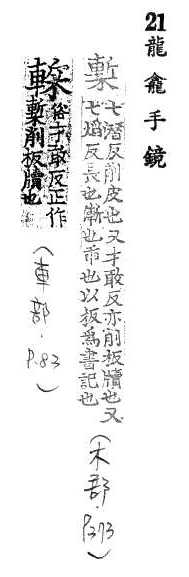 21龍龕手鏡
槧七潛反削皮也又才敢反亦削板牘也又
七焰反長也漸也市也以板為書記也
（木部．P.373）
俗才敢反正作
槧削板牘也
（車部．P.83）